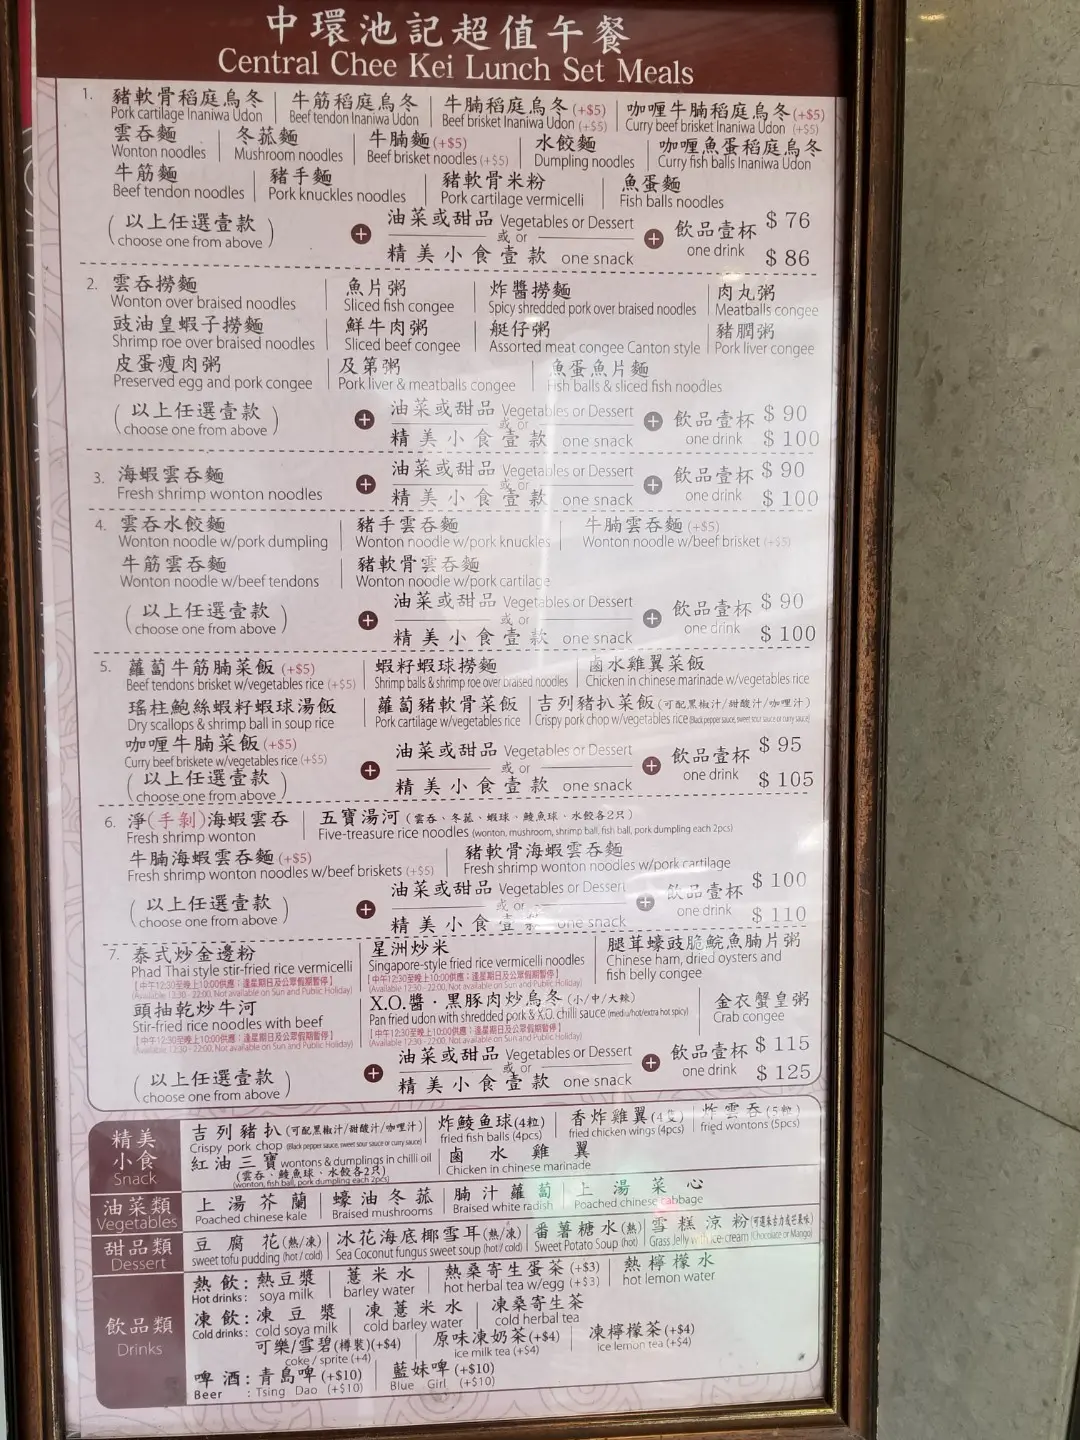 中環池記超值午餐
Central Chee Kei Lunch Set Meals
1. 豬軟骨稻庭烏冬 | 牛筋稻庭烏冬 | 牛腩稻庭烏冬 (+$5) | 咖喱牛腩稻庭烏冬 (+$5)
Pork cartilage Inaniwa Udon | Beef tendon Inaniwa Udon | Beef brisket Inaniwa Udon (+$5) | Curry beef brisket Inaniwa Udon (+$5)
雲吞麵 | 冬菰麵 | 牛腩麵 (+$5) | 水餃麵 | 咖喱魚蛋稻庭烏冬
Wonton noodles | Mushroom noodles | Beef brisket noodles (+$5) | Dumpling noodles | Curry fish balls Inaniwa Udon
牛筋麵 | 豬手麵 | 豬軟骨米粉 | 魚蛋麵
Beef tendon noodles | Pork knuckles noodles | Pork cartilage vermicelli | Fish balls noodles
(以上任選壹款) + 油菜或甜品 Vegetables or Dessert + 飲品壹杯 $ 76
(choose one from above) 或 or one drink
精美小食壹款 one snack $ 86
2. 雲吞撈麵 | 魚片粥 | 炸醬撈麵 | 肉丸粥
Wonton over braised noodles | Sliced fish congee | Spicy shredded pork over braised noodles | Meatballs congee
豉油皇蝦子撈麵 | 鮮牛肉粥 | 艇仔粥 | 豬膶粥
Shrimp roe over braised noodles | Sliced beef congee | Assorted meat congee Canton style | Pork liver congee
皮蛋瘦肉粥 | 及第粥 | 魚蛋魚片麵
Preserved egg and pork congee | Pork liver & meatballs congee | Fish balls & sliced fish noodles
(以上任選壹款) + 油菜或甜品 Vegetables or Dessert + 飲品壹杯 $ 90
(choose one from above) 或 or
精美小食壹款 one snack one drink $ 100
3. 海蝦雲吞麵 + 油菜或甜品 Vegetables or Dessert + 飲品壹杯 $ 90
Fresh shrimp wonton noodles 或 or
精美小食壹款 one snack one drink $ 100
4. 雲吞水餃麵 | 豬手雲吞麵 | 牛腩雲吞麵 (+$5)
Wonton noodle w/pork dumpling | Wonton noodle w/pork knuckles | Wonton noodle w/beef brisket (+$5)
牛筋雲吞麵 | 豬軟骨雲吞麵
Wonton noodle w/beef tendons | Wonton noodle w/pork cartilage
(以上任選壹款) + 油菜或甜品 Vegetables or Dessert + 飲品壹杯 $ 90
(choose one from above) 或 or one drink
精美小食壹款 one snack $ 100
5. 蘿蔔牛筋腩菜飯 (+$5) | 蝦籽蝦球撈麵 | 鹵水雞翼菜飯
Beef tendons brisket w/vegetables rice (+$5) | Shrimp balls & shrimp roe over braised noodles | Chicken in chinese marinade w/vegetables rice
瑤柱鮑絲蝦籽蝦球湯飯 | 蘿蔔豬軟骨菜飯 | 吉列豬扒菜飯 (可配黑椒汁/甜酸汁/咖喱汁)
Dry scallops & shrimp ball in soup rice | Pork cartilage w/vegetables rice | Crispy pork chop w/vegetables rice (Black pepper sauce, sweet sour sauce or curry sauce)
咖喱牛腩菜飯 (+$5) + 油菜或甜品 Vegetables or Dessert + 飲品壹杯 $ 95
Curry beef briskete w/vegetables rice (+$5) 或 or
(以上任選壹款) 精美小食壹款 one snack one drink $ 105
(choose one from above)
6. 淨(手剝)海蝦雲吞 | 五寶湯河 (雲吞、冬菰、蝦球、鯪魚球、水餃各2只)
Fresh shrimp wonton | Five-treasure rice noodles (wonton, mushroom, shrimp ball, fish ball, pork dumpling each 2pcs)
牛腩海蝦雲吞麵 (+$5) | 豬軟骨海蝦雲吞麵
Fresh shrimp wonton noodles w/beef briskets (+$5) | Fresh shrimp wonton noodles w/pork cartilage
(以上任選壹款) + 油菜或甜品 Vegetables or Dessert + 飲品壹杯 $ 100
(choose one from above) 或 or
精美小食壹款 one snack one drink $ 110
7. 泰式炒金邊粉 | 星洲炒米 | 腿茸蠔豉脆鯇魚腩片粥
Phad Thai style stir-fried rice vermicelli | Singapore-style fried rice vermicelli noodles | Chinese ham, dried oysters and fish belly congee
[中午12:30至晚上10:00供應：逢星期日及公眾假期暫停] [中午12:30至晚上10:00供應：逢星期日及公眾假期暫停]
(Available 12:30 - 22:00, Not available on Sun and Public Holiday) (Available 12:30 - 22:00, Not available on Sun and Public Holiday)
頭抽乾炒牛河 | X.O.醬·黑豚肉炒烏冬 (小/中/大辣) | 金衣蟹皇粥
Stir-fried rice noodles with beef | Pan fried udon with shredded pork & X.O. chilli sauce (mediu/hot/extra hot spicy) | Crab congee
[中午12:30至晚上10:00供應：逢星期日及公眾假期暫停] [中午12:30至晚上10:00供應：逢星期日及公眾假期暫停]
(Available 12:30 - 22:00, Not available on Sun and Public Holiday) (Available 12:30 - 22:00, Not available on Sun and Public Holiday)
(以上任選壹款) + 油菜或甜品 Vegetables or Dessert + 飲品壹杯 $ 115
(choose one from above) 或 or
精美小食壹款 one snack one drink $ 125
精美小食 Snack
吉列豬扒 (可配黑椒汁/甜酸汁/咖喱汁) | 炸鯪魚球(4粒) | 香炸雞翼(4隻) | 炸雲吞(5粒)
Crispy pork chop (Black pepper sauce, sweet sour sauce or curry sauce) | fried fish balls (4pcs) | fried chicken wings (4pcs) | fried wontons (5pcs)
紅油三寶 wontons & dumplings in chilli oil | 鹵水雞翼
(雲吞、鯪魚球、水餃各2只) Chicken in chinese marinade
(wonton, fish ball, pork dumpling each 2pcs)
油菜類 Vegetables
上湯芥蘭 | 蠔油冬菰 | 腩汁蘿蔔 | 上湯菜心
Poached chinese kale | Braised mushrooms | Braised white radish | Poached chinese cabbage
甜品類 Dessert
豆腐花(熱/凍) | 冰花海底椰雪耳(熱/凍) | 番薯糖水(熱) | 雪糕涼粉(可選朱古力或芒果味)
sweet tofu pudding (hot / cold) | Sea Coconut fungus sweet soup (hot / cold) | Sweet Potato Soup (hot) | Grass Jelly with ice-cream (Chocolate or Mango)
飲品類 Drinks
熱飲：熱豆漿 | 薏米水 | 熱桑寄生蛋茶(+$3) | 熱檸檬水
Hot drinks: soya milk | barley water | hot herbal tea w/egg (+$3) | hot lemon water
凍飲：凍豆漿 | 凍薏米水 | 凍桑寄生茶
Cold drinks: cold soya milk | cold barley water | cold herbal tea
可樂/雪碧(樽裝)(+$4) | 原味凍奶茶(+$4) | 凍檸檬茶(+$4)
coke / sprite (+4) | ice milk tea (+$4) | ice lemon tea (+$4)
啤酒：青島啤 (+$10) | 藍妹啤 (+$10)
Beer : Tsing Dao (+$10) | Blue Girl (+$10)